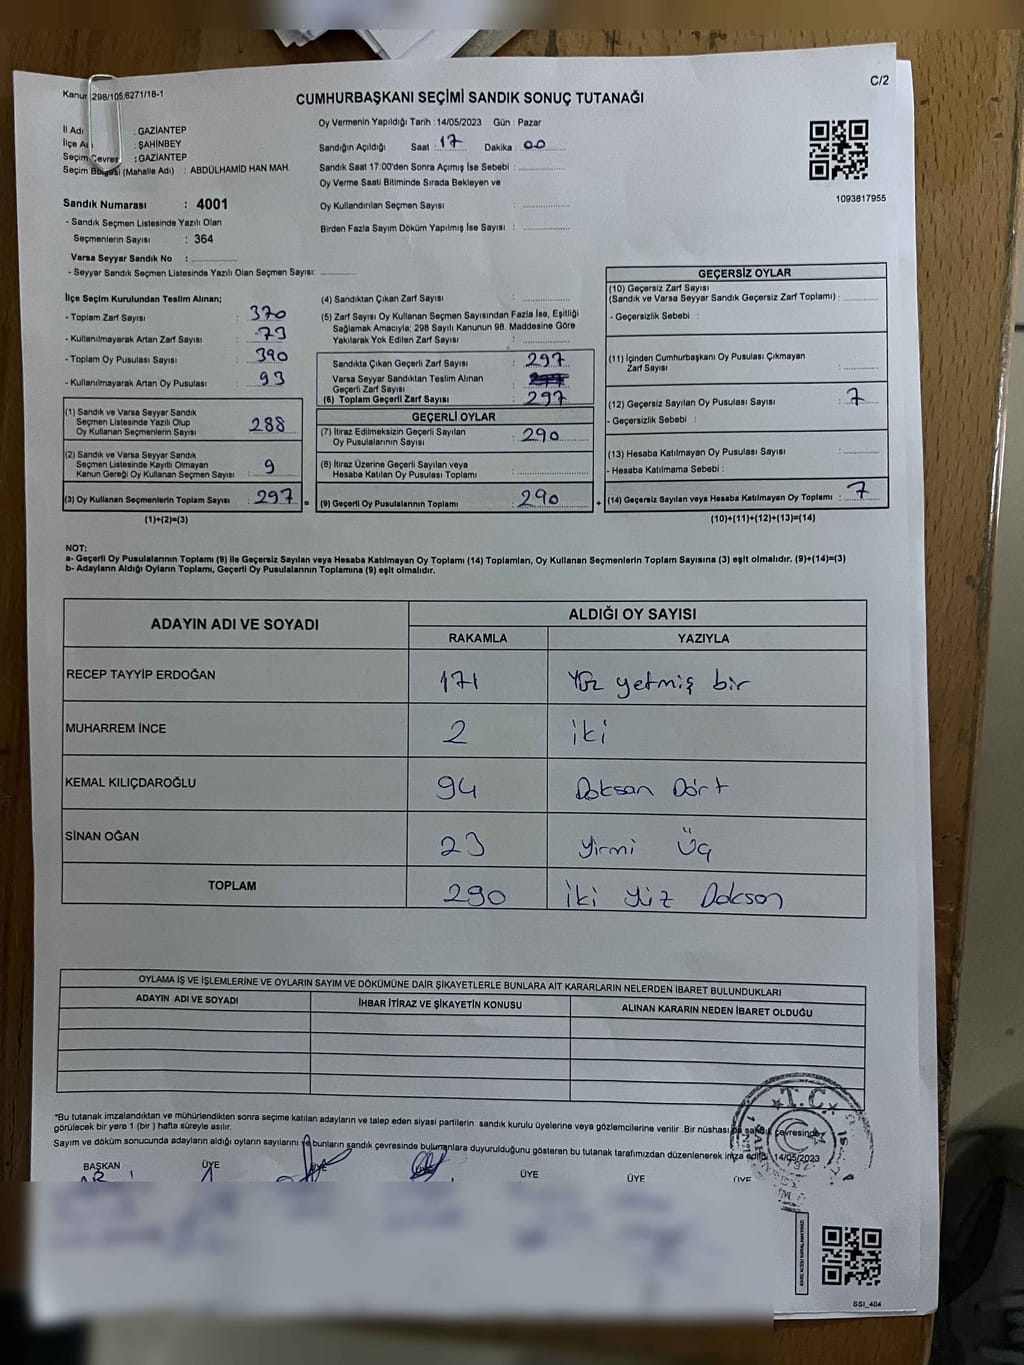 C/2
Kanun 298/105,6271/18-1
CUMHURBAŞKANI SEÇİMİ SANDIK SONUÇ TUTANAĞI
İl Adı : GAZİANTEP
İlçe Adı : ŞAHİNBEY
Seçim Çevresi : GAZİANTEP
Seçim Bölgesi (Mahalle Adı) : ABDÜLHAMİD HAN MAH.
Sandık Numarası : 4001
- Sandık Seçmen Listesinde Yazılı Olan
Seçmenlerin Sayısı : 364
Varsa Seyyar Sandık No :
- Seyyar Sandık Seçmen Listesinde Yazılı Olan Seçmen Sayısı:
Oy Vermenin Yapıldığı Tarih : 14/05/2023 Gün : Pazar
Sandığın Açıldığı Saat : 17 Dakika : 00
Sandık Saat 17:00'den Sonra Açımış İse Sebebi :
Oy Verme Saati Bitiminde Sırada Bekleyen ve
Oy Kullandırılan Seçmen Sayısı :
Birden Fazla Sayım Döküm Yapılmış İse Sayısı :
1093817955
İlçe Seçim Kurulundan Teslim Alınan;
- Toplam Zarf Sayısı : 370
- Kullanılmayarak Artan Zarf Sayısı : 73
- Toplam Oy Pusulası Sayısı : 390
- Kullanılmayarak Artan Oy Pusulası : 93
(1) Sandık ve Varsa Seyyar Sandık
Seçmen Listesinde Yazılı Olup
Oy Kullanan Seçmenlerin Sayısı : 288
(2) Sandık ve Varsa Seyyar Sandık
Seçmen Listesinde Kayıtlı Olmayan
Kanun Gereği Oy Kullanan Seçmen Sayısı : 9
(3) Oy Kullanan Seçmenlerin Toplam Sayısı : 297 =
(1)+(2)=(3)
(4) Sandıktan Çıkan Zarf Sayısı :
(5) Zarf Sayısı Oy Kullanan Seçmen Sayısından Fazla İse, Eşitliği
Sağlamak Amacıyla; 298 Sayılı Kanunun 98. Maddesine Göre
Yakılarak Yok Edilen Zarf Sayısı :
Sandıkta Çıkan Geçerli Zarf Sayısı : 297
Varsa Seyyar Sandıktan Teslim Alınan
Geçerli Zarf Sayısı :
(6) Toplam Geçerli Zarf Sayısı : 297
GEÇERLİ OYLAR
(7) İtiraz Edilmeksizin Geçerli Sayılan
Oy Pusulalarının Sayısı : 290
(8) İtiraz Üzerine Geçerli Sayılan veya
Hesaba Katılan Oy Pusulası Toplamı :
(9) Geçerli Oy Pusulalarının Toplamı : 290 +
GEÇERSİZ OYLAR
(10) Geçersiz Zarf Sayısı
(Sandık ve Varsa Seyyar Sandık Geçersiz Zarf Toplamı) :
- Geçersizlik Sebebi :
(11) İçinden Cumhurbaşkanı Oy Pusulası Çıkmayan
Zarf Sayısı :
(12) Geçersiz Sayılan Oy Pusulası Sayısı : 7
- Geçersizlik Sebebi :
(13) Hesaba Katılmayan Oy Pusulası Sayısı :
- Hesaba Katılmama Sebebi :
(14) Geçersiz Sayılan veya Hesaba Katılmayan Oy Toplamı : 7
(10)+(11)+(12)+(13)=(14)
NOT:
a- Geçerli Oy Pusulalarının Toplamı (9) ile Geçersiz Sayılan veya Hesaba Katılmayan Oy Toplamı (14) Toplamları, Oy Kullanan Seçmenlerin Toplam Sayısına (3) eşit olmalıdır. (9)+(14)=(3)
b- Adayların Aldığı Oyların Toplamı, Geçerli Oy Pusulalarının Toplamına (9) eşit olmalıdır.
ADAYIN ADI VE SOYADI ALDIĞI OY SAYISI
RAKAMLA YAZIYLA
RECEP TAYYİP ERDOĞAN 171 Yüz yetmiş bir
MUHARREM İNCE 2 iki
KEMAL KILIÇDAROĞLU 94 Doksan Dört
SİNAN OĞAN 23 yirmi Üç
TOPLAM 290 iki yüz Doksan
OYLAMA İŞ VE İŞLEMLERİNE VE OYLARIN SAYIM VE DÖKÜMÜNE DAİR ŞİKAYETLERLE BUNLARA AİT KARARLARIN NELERDEN İBARET BULUNDUKLARI
ADAYIN ADI VE SOYADI İHBAR İTİRAZ VE ŞİKAYETİN KONUSU ALINAN KARARIN NEDEN İBARET OLDUĞU
*Bu tutanak imzalandıktan ve mühürlendikten sonra seçime katılan adayların ve talep eden siyasi partilerin sandık kurulu üyelerine veya gözlemcilerine verilir .Bir nüshası da sandık çevresinde
görülecek bir yere 1 (bir ) hafta süreyle asılır.
Sayım ve döküm sonucunda adayların aldığı oyların sayılarını ve bunların sandık çevresinde bulunanlara duyurulduğunu gösteren bu tutanak tarafımızdan düzenlenerek imza edildi. 14/05/2023
BAŞKAN ÜYE ÜYE ÜYE ÜYE ÜYE
T.C.
SSI_404